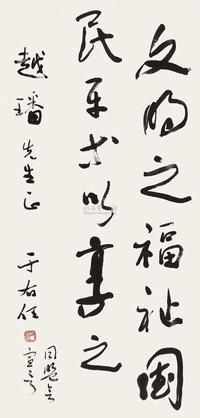 文明之福祉国
民平等以享之
越璠先生正
于右任
同盟会
宣言